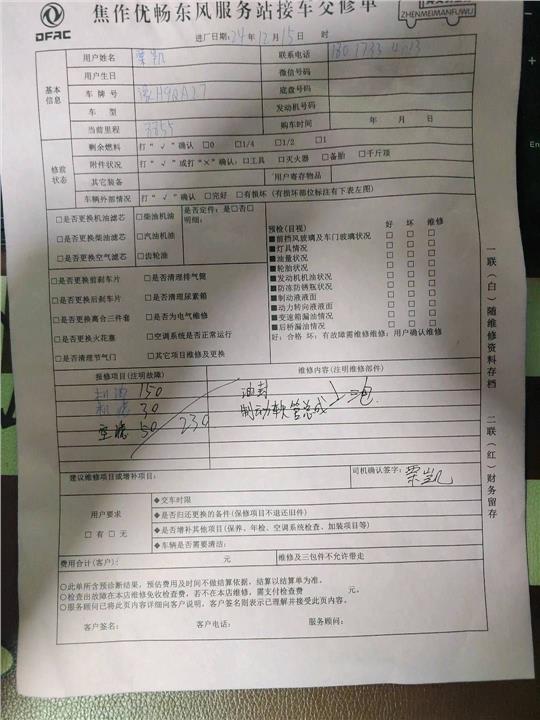 DFAC 焦作优畅东风服务站接车交修单
ZHENMEIMANFUWU
进厂日期:24年12月15日 时
基本信息
用户姓名 栗凯 联系电话
用户生日 微信号码
车牌号 豫H9QA27 底盘号码
车型 发动机号码
当前里程 3355 购车时间 年 月 日
修前状态
剩余燃料 打“√”确认 □0 □1/4 □1/2 □1
附件状况 打“√”或打“×”确认:□工具 □灭火器 □备胎 □千斤顶
其它装备 用户寄存物品
车辆外部情况 打“√”确认 □完好 □有损坏(有损坏部位标注有下表左图)
□是否更换机油滤芯 □柴油机油 是否定件:是□否□
明细:
□是否更换柴油滤芯 □汽油机油
□是否更换空气滤芯 □齿轮油
□是否更换前刹车片 □是否清理排气筒
□是否更换后刹车片 □是否清理尿素箱
□是否更换离合三件套 □是否为电气维修
□是否更换火花塞 □空调系统是否正常运行
□是否清理节气门 □其它项目维修及更换
预检(目视) 好 坏 维修
■前挡风玻璃及车门玻璃状况 □ □ □
■灯具情况 □ □ □
■油量状况 □ □ □
■轮胎状况 □ □ □
■发动机机油状况 □ □ □
■防冻防锈瓶状况 □ □ □
■制动液液面 □ □ □
■动力转向液液面 □ □ □
■变速箱漏油情况 □ □ □
■后桥漏油情况 □ □ □
好:合格 坏:有故障需维修维修:用户确认维修
报修项目(注明故障) 维修内容(注明维修部件)
机油 150 油封
机滤 30 制动软管总成
空滤 50 230
建议维修项目或增补项目: 司机确认签字: 栗凯
用户要求
□有 □无
◆交车时限
◆是否归还更换的备件(保修项目不退还旧件)
◆是否增补其他项目(保养、年检、空调系统检查、加装项目等)
◆车辆是否需要清洁:
费用合计(客户): 元 维修及三包件不允许带走
○此单所含预诊断结果,预估费用及时间不做结算依据,结算以结算单为准。
○检查出故障在本店维修免收检查费,若不在本店维修,需支付检查费 元。
○服务顾问已将此页内容详细向客户说明,客户签名则表示已理解并接受此页内容。
客户签名: 客户电话: 服务顾问:
一联(白)随维修资料存档 二联(红)财务留存